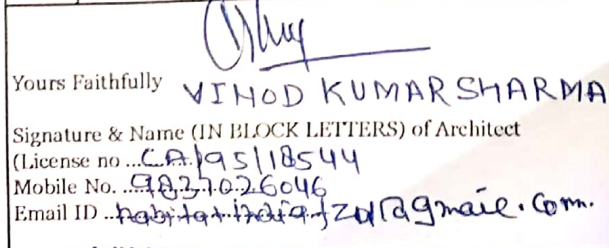 Yours Faithfully VINOD KUMAR SHARMA
Signature & Name (IN BLOCK LETTERS) of Architect
(License no ...CA/95/18544
Mobile No. ...9837026046
Email ID ..